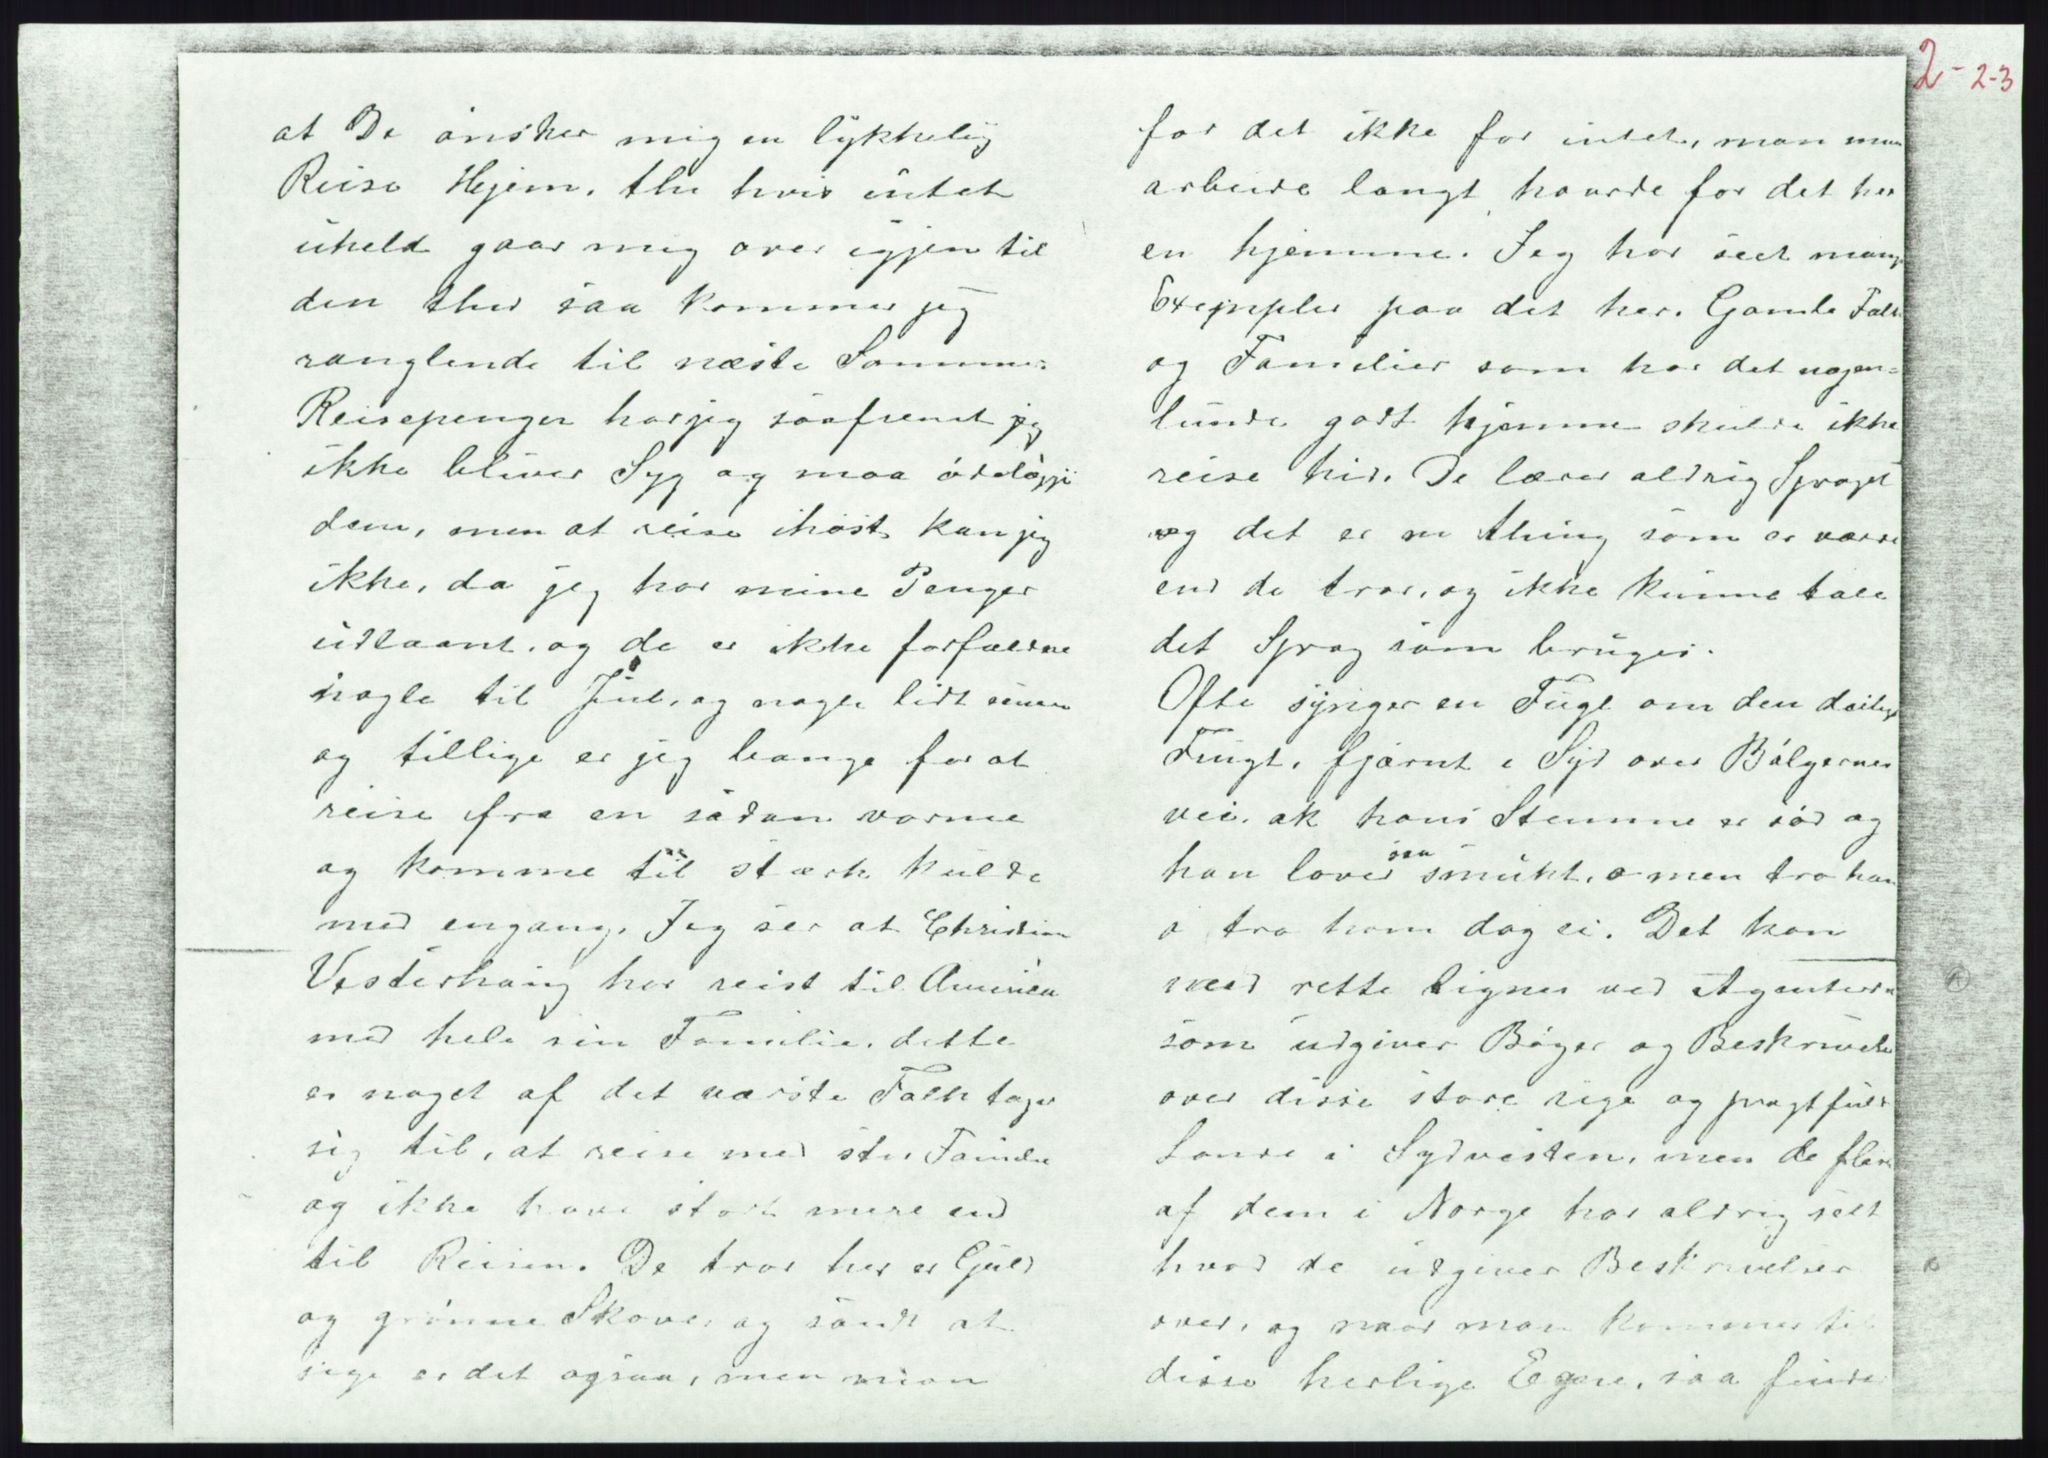 2- 2-3
at De ønsker mig en lykkelig
Reise Hjem, thi hvis intet
uheld gaar mig over igjen til
den thid saa kommer jeg
ranglende til næste Sommer.
Reisepenger har jeg saafremt jeg
ikke bliver Syg og maa ødelægge
dem, men at reise ihøst kan jeg
ikke, da jeg har mine Penger
udlaant, og de er ikke forfaldne
nogle til Jul, og nogle lidt senere
og tillige er jeg bange for at
reise fra en sådan varme
og komme til stærk kulde
med engang. Jeg ser at Christian
Vesterhaug har reist til America
med hele sin Familie, dette
er noget af det værste Folk tager
sig til, at reise med stor Familie
og ikke have stort mere end
til Reisen. De tror her er Guld
og grønne Skove, og sandt at
sige er det ogsaa, men man
faar det ikke for intet, man maa
arbeide langt haarde for det her
en hjemme. Jeg har seet mange
Exempler paa det her. Gamle Folk
og Familier som har det nogen=
lunde godt hjemme skulde ikke
reise hid. De lærer aldrig Sproget
og det er en thing som er værre
end de tror, og ikke kunne tale
det Sprog som bruges.
Ofte synger en Fugl om den deilige
Frugt, fjærnt i Syd over Bølgernes
vei, ak hans Stemme er sød og
han lover saa smukt, o men tro ham
o tro ham dog ei. Det kan
med rette lignes ved Agenterne
som udgiver Bøger og Beskrivelse
over disse store rige og pragtfulde
Lande i Sydvesten, men de fleste
af dem i Norge har aldrig seet
hvad de udgiver Beskrivelser
over, og naar man kommer til
disse herlige Egne, saa finder